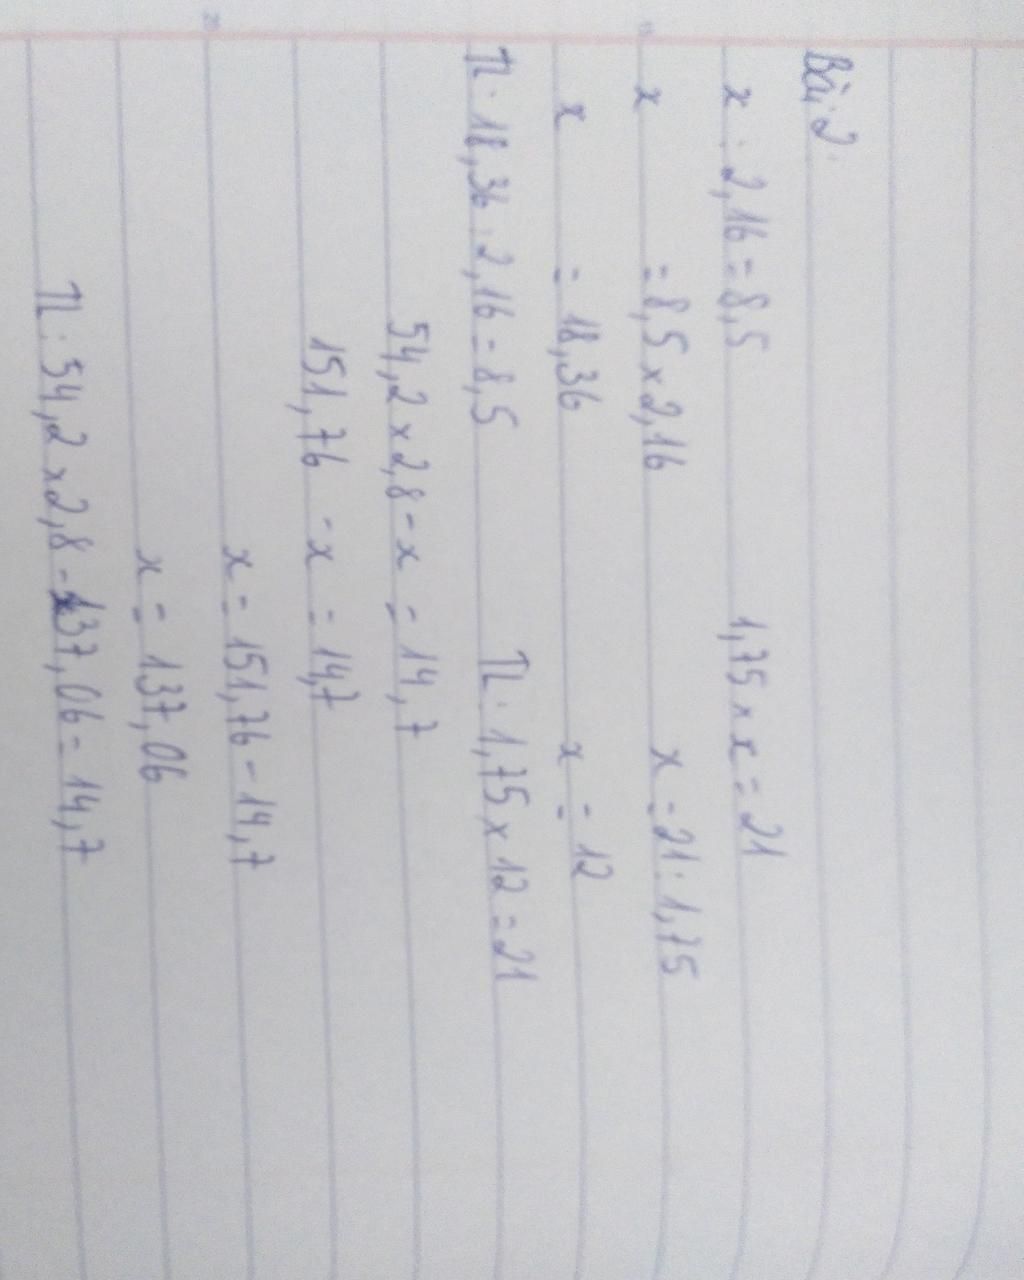 Bài 2:
x : 2,16 = 8,5 1,75 x x = 21
x = 8,5 x 2,16 x = 21 : 1,75
x = 18,36 x = 12
TL : 18,36 : 2,16 = 8,5 TL : 1,75 x 12 = 21
54,2 x 2,8 - x = 14,7
151,76 - x = 14,7
x = 151,76 - 14,7
x = 137,06
TL : 54,2 x 2,8 - 137,06 = 14,7